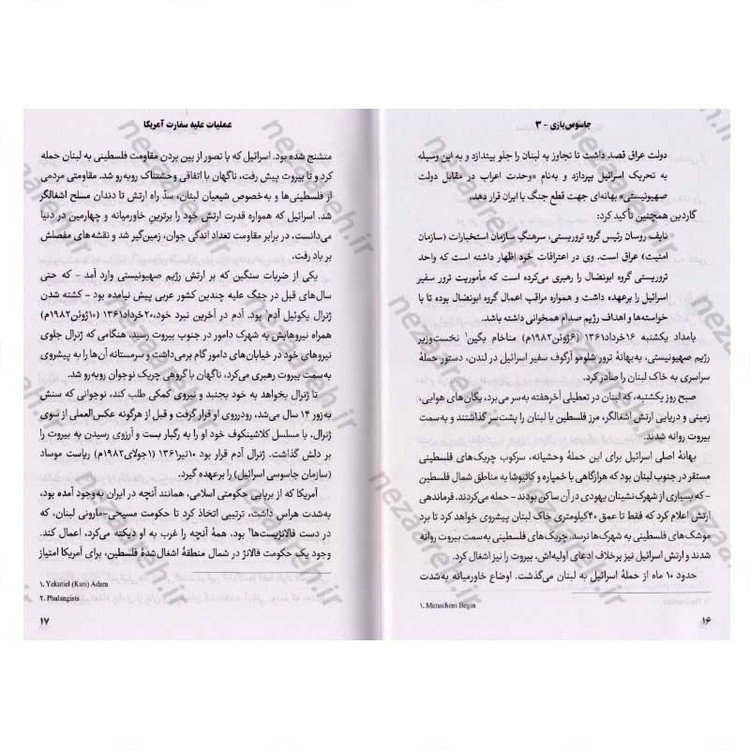 جاسوس‌بازی - ۳
دولت عراق قصد داشت تا تجاوز به لبنان را جلو بیندازد و به این وسیله
به تحریک اسرائیل بپردازد و به‌نام «وحدت اعراب در مقابل دولت
صهیونیستی» بهانه‌ای جهت قطع جنگ با ایران قرار دهد.
گاردین همچنین تأکید کرد:
نایف روسان رئیس گروه تروریستی، سرهنگ سازمان استخبارات (سازمان
امنیت) عراق است. وی در اعترافات خود اظهار داشته است که واحد
تروریستی گروه ابونضال را رهبری می‌کرده است که مأموریت ترور سفیر
اسرائیل را برعهده داشت و همواره مراقب اعمال گروه ابونضال بوده تا با
خواسته‌ها و اهداف رژیم صدام همخوانی داشته باشد.
بامداد یکشنبه ۱۶خرداد۱۳۶۱ (۶ژوئن۱۹۸۲م) مناخام بگین۱ نخست‌وزیر
رژیم صهیونیستی، به‌بهانهٔ ترور شلومو آرگوف سفیر اسرائیل در لندن، دستور حملهٔ
سراسری به خاک لبنان را صادر کرد.
صبح روز یکشنبه، که لبنان در تعطیلی آخرهفته به‌سر می‌برد، یگان‌های هوایی،
زمینی و دریایی ارتش اشغالگر، مرز فلسطین با لبنان را پشت‌سر گذاشتند و به‌سمت
بیروت روانه شدند.
بهانهٔ اصلی اسرائیل برای این حملهٔ وحشیانه، سرکوب چریک‌های فلسطینی
مستقر در جنوب لبنان بود که هرازگاهی با خمپاره و کاتیوشا به مناطق شمال فلسطین
- که بسیاری از شهرک‌نشینان یهودی در آن ساکن بودند - حمله می‌کردند. فرماندهی
ارتش اعلام کرد که فقط تا عمق ۴۰کیلومتری خاک لبنان پیشروی خواهد کرد تا برد
موشک‌های فلسطینی به شهرک‌ها نرسد. چریک‌های فلسطینی به‌سمت بیروت روانه
شدند و ارتش اسرائیل نیز برخلاف ادعای اولیه‌اش، بیروت را نیز اشغال کرد.
حدود ۱۰ ماه از حملهٔ اسرائیل به لبنان می‌گذشت. اوضاع خاورمیانه به‌شدت
1. Menachem Begin
۱۶
عملیات علیه سفارت آمریکا
متشنج شده بود. اسرائیل که با تصور از بین بردن مقاومت فلسطینی به لبنان حمله
کرد و تا بیروت پیش رفت، ناگهان با اتفاقی وحشتناک روبه‌رو شد. مقاومتی مردمی
از فلسطینی‌ها و به‌خصوص شیعیان لبنان، سدّ راه ارتش تا دندان مسلح اشغالگر
شد. اسرائیل که همواره قدرت ارتش خود را برترین خاورمیانه و چهارمین در دنیا
می‌دانست، در برابر مقاومت تعداد اندکی جوان، زمین‌گیر شد و نقشه‌های مفصلش
بر باد رفت.
یکی از ضربات سنگین که بر ارتش رژیم صهیونیستی وارد آمد - که حتی
سال‌های قبل در جنگ علیه چندین کشور عربی پیش نیامده بود - کشته شدن
ژنرال یکوتیل آدم۱ بود. آدم در آخرین نبرد خود،۲۰خرداد۱۳۶۱ (۱۰ژوئن۱۹۸۲م)
همراه نیروهایش به شهرک دامور در جنوب بیروت رسید. هنگامی که ژنرال جلوی
نیروهای خود در خیابان‌های دامور گام برمی‌داشت و سرمستانه آن‌ها را به پیشروی
به‌سمت بیروت رهبری می‌کرد، ناگهان با گروهی چریک نوجوان روبه‌رو شد.
تا ژنرال بخواهد به خود بجنبد و نیروی کمکی طلب کند، نوجوانی که سنش
به‌زور ۱۴ سال می‌شد، رودرروی او قرار گرفت و قبل از هرگونه عکس‌العملی از سوی
ژنرال، با مسلسل کلاشینکوف خود او را به رگبار بست و آرزوی رسیدن به بیروت را
بر دلش گذاشت. ژنرال آدم قرار بود ۱۰تیر۱۳۶۱ (۱جولای۱۹۸۲م) ریاست موساد
(سازمان جاسوسی اسرائیل) را برعهده گیرد.
آمریکا که از برپایی حکومتی اسلامی، همانند آنچه در ایران به‌وجود آمده بود،
به‌شدت هراس داشت، ترتیبی اتخاذ کرد تا حکومت مسیحی-مارونی لبنان، که
در دست فالانژیست‌ها۲ بود، همهٔ آنچه را غرب به او دیکته می‌کرد، اعمال کند.
وجود یک حکومت فالانژ در شمال منطقهٔ اشغال‌شدهٔ فلسطین، برای آمریکا امتیاز
1. Yekutiel (Kuti) Adam
2. Phalangists
۱۷
nezaareh.ir